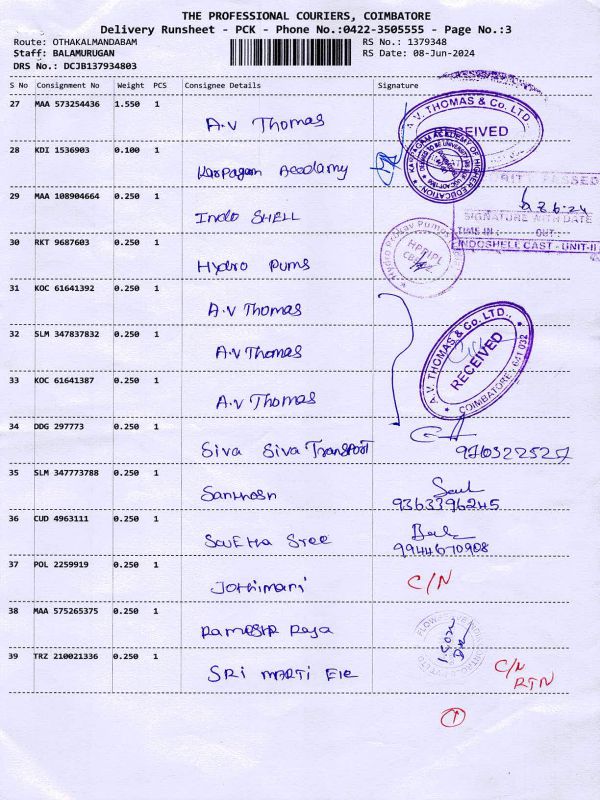 THE PROFESSIONAL COURIERS, COIMBATORE
Delivery Runsheet - PCK - Phone No.:0422-3505555 - Page No.:3
Route: OTHAKALMANDABAM RS No.: 1379348
Staff: BALAMURUGAN RS Date: 08-Jun-2024
DRS No.: DCJB137934803
S No Consignment No Weight PCS Consignee Details Signature
27 MAA 573254436 1.550 1 A.V Thomas
A.V. THOMAS & Co. LTD.
RECEIVED
28 KDI 1536903 0.100 1 Karpagam Academy
KARPAGAM ACADEMY OF HIGHER EDUCATION
29 MAA 108904664 0.250 1 Indo SHELL
8.6.24
SIGNATURE WITH DATE
TIME IN : OUT :
INDOSHELL CAST - UNIT-II
30 RKT 9687603 0.250 1 Hydro Pums
31 KOC 61641392 0.250 1 A.V Thomas
32 SLM 347837832 0.250 1 A.V Thomas
33 KOC 61641387 0.250 1 A.V Thomas
A.V. THOMAS & Co. LTD.,
RECEIVED
COIMBATORE - 641 032
34 DDG 297773 0.250 1 Siva Siva Transport
35 SLM 347773788 0.250 1 Santhosh
9363396245
36 CUD 4963111 0.250 1
9944670908
37 POL 2259919 0.250 1 Jothimani C/N
38 MAA 575265375 0.250 1 Ramesh Raja
39 TRZ 210021336 0.250 1 SRi C/N
RTN